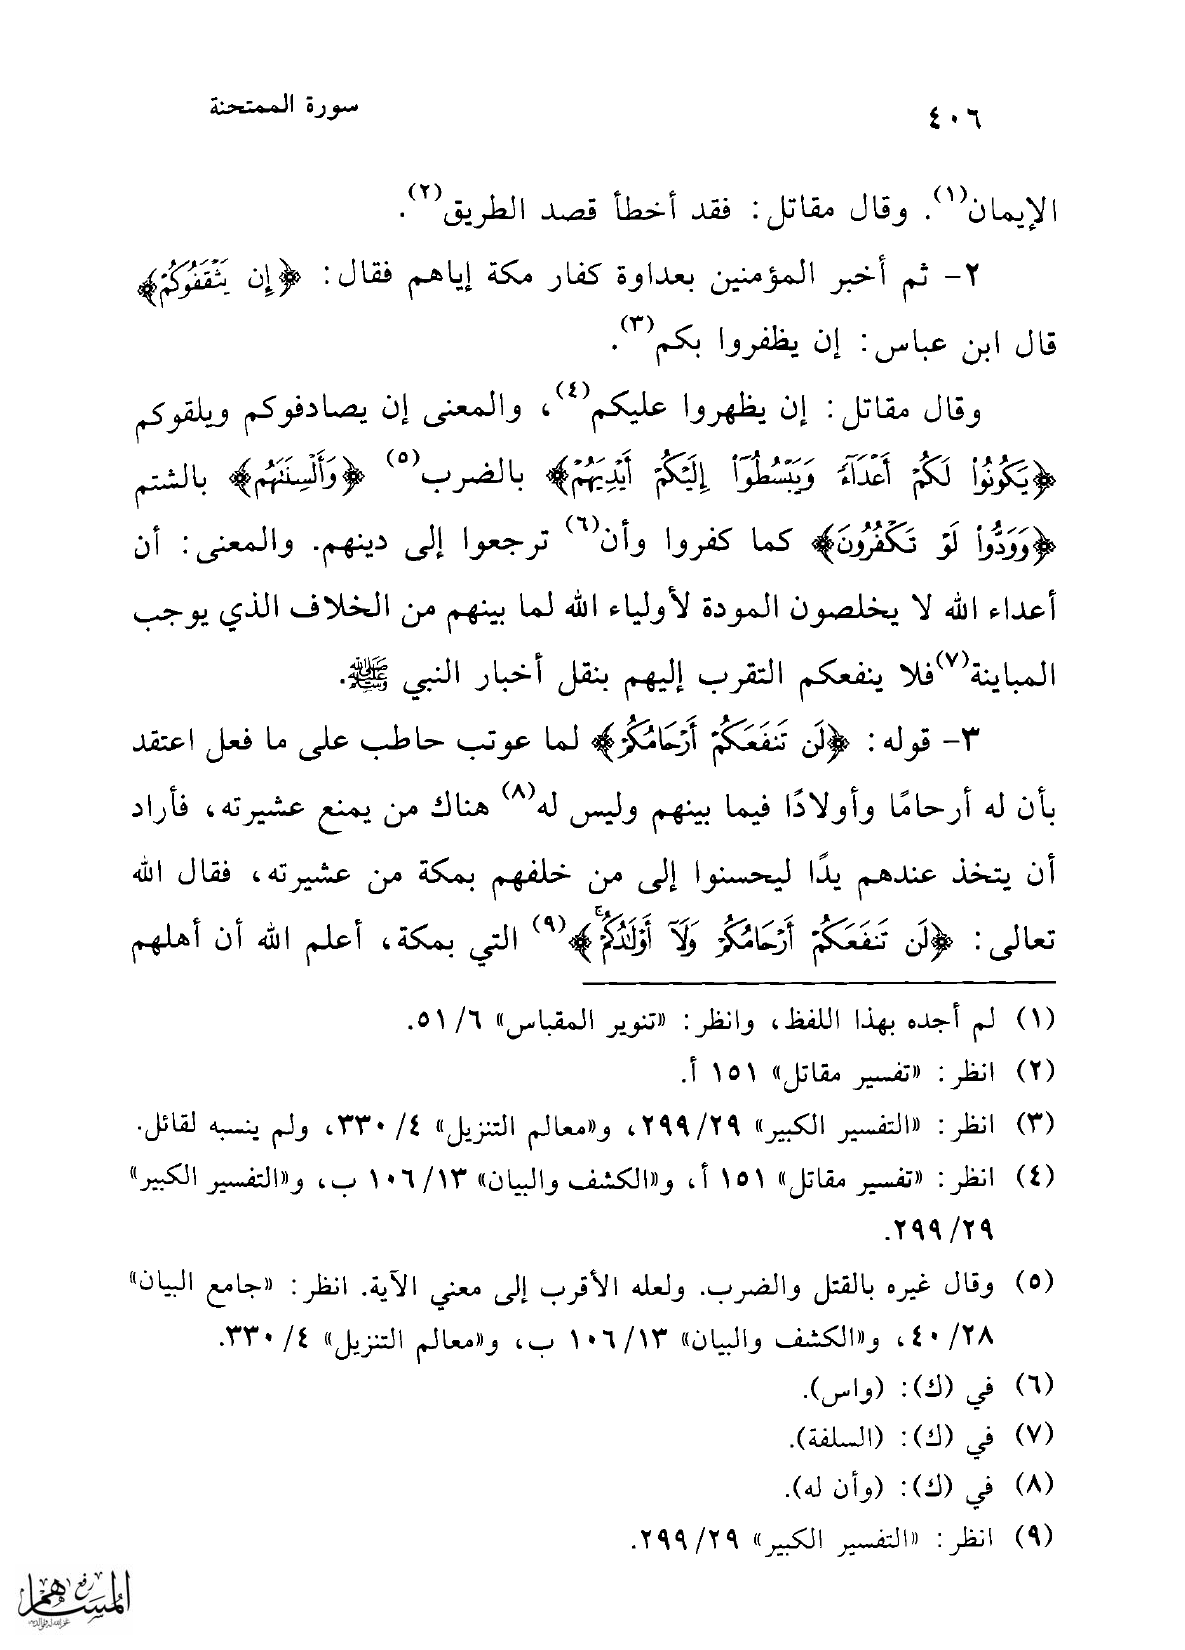 ٤٠٦
سورة الممتحنة
الإيمان(١). وقال مقاتل: فقد أخطأ قصد الطريق(٢).
٢- ثم أخبر المؤمنين بعداوة كفار مكة إياهم فقال: ﴿إِن يَثْقَفُوكُمْ﴾
قال ابن عباس: إن يظفروا بكم(٣).
وقال مقاتل: إن يظهروا عليكم(٤)، والمعنى إن يصادفوكم ويلقوكم
﴿يَكُونُوا۟ لَكُمْ أَعْدَآءً وَيَبْسُطُوٓا۟ إِلَيْكُمْ أَيْدِيَهُمْ﴾ بالضرب(٥) ﴿وَأَلْسِنَتَهُم﴾ بالشتم
﴿وَوَدُّوا۟ لَوْ تَكْفُرُونَ﴾ كما كفروا وأن(٦) ترجعوا إلى دينهم. والمعنى: أن
أعداء الله لا يخلصون المودة لأولياء الله لما بينهم من الخلاف الذي يوجب
المباينة(٧)فلا ينفعكم التقرب إليهم بنقل أخبار النبي ﷺ.
٣- قوله: ﴿لَن تَنفَعَكُمْ أَرْحَامُكُمْ﴾ لما عوتب حاطب على ما فعل اعتقد
بأن له أرحامًا وأولادًا فيما بينهم وليس له(٨) هناك من يمنع عشيرته، فأراد
أن يتخذ عندهم يدًا ليحسنوا إلى من خلفهم بمكة من عشيرته، فقال الله
تعالى: ﴿لَن تَنفَعَكُمْ أَرْحَامُكُمْ وَلَآ أَوْلَٰدُكُمْ ۚ﴾(٩) التي بمكة، أعلم الله أن أهلهم
(١) لم أجده بهذا اللفظ، وانظر: «تنوير المقباس» ٦/ ٥١.
(٢) انظر: «تفسير مقاتل» ١٥١ أ.
(٣) انظر: «التفسير الكبير» ٢٩/ ٢٩٩، و«معالم التنزيل» ٤/ ٣٣٠، ولم ينسبه لقائل.
(٤) انظر: «تفسير مقاتل» ١٥١ أ، و«الكشف والبيان» ١٣/ ١٠٦ ب، و«التفسير الكبير»
٢٩/ ٢٩٩.
(٥) وقال غيره بالقتل والضرب. ولعله الأقرب إلى معني الآية. انظر: «جامع البيان»
٢٨/ ٤٠، و«الكشف والبيان» ١٣/ ١٠٦ ب، و«معالم التنزيل» ٤/ ٣٣٠.
(٦) في (ك): (واس).
(٧) في (ك): (السلفة).
(٨) في (ك): (وأن له).
(٩) انظر: «التفسير الكبير» ٢٩/ ٢٩٩.